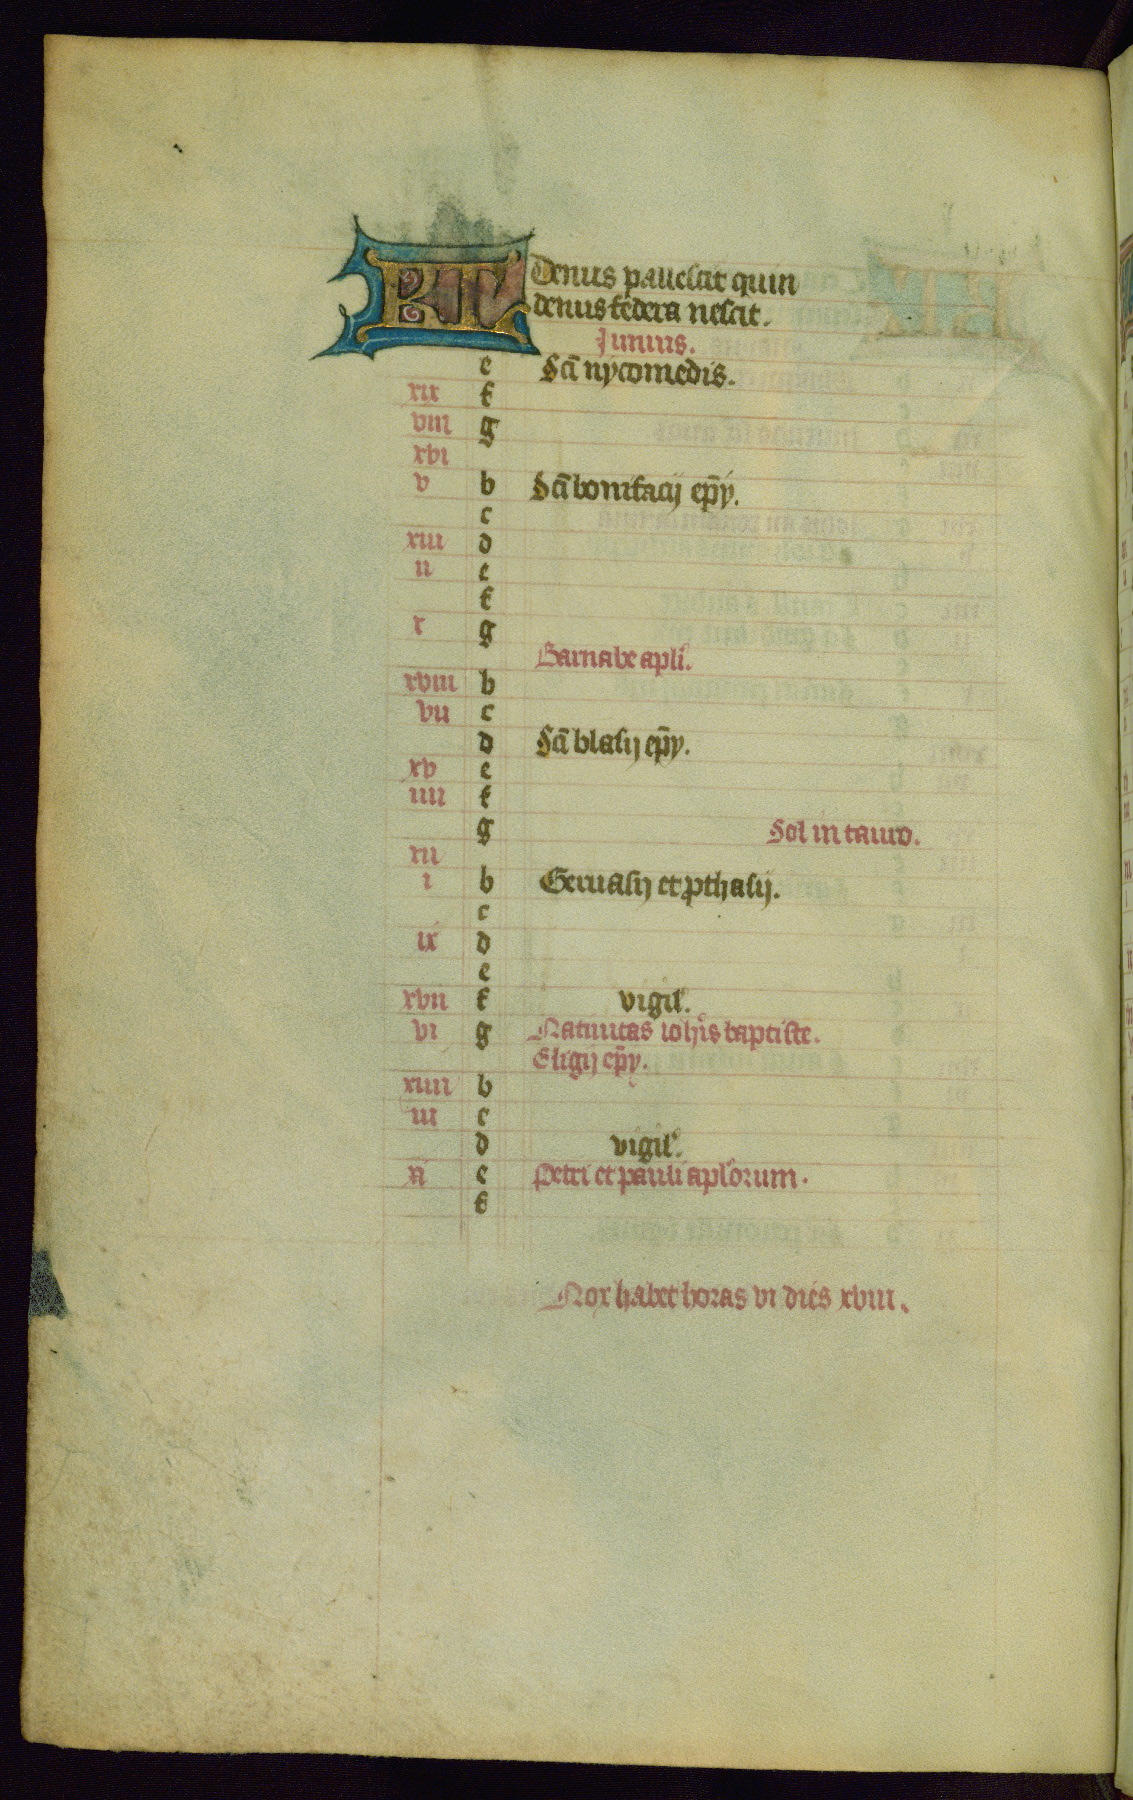 KL Denus pavescit quin
denus federa nescit.
Junius.
e Scī nycomedis.
xix f
viii g
xvi
v b Scī bonifacij ep̄y.
c
xiii d
ii e
f
x g
Barnabe apli.
xviii b
vii c
d Scī blasij ep̄y.
xv e
iiii f
g Sol in tauro.
xii
i b Geruasij et ꝓthasij.
c
ix d
e
xvii f vigil'.
vi g Natiuitas ioh̄is baptiste.
Eligij ep̄y.
xiiii b
iii c
d vigil'.
xi e Petri et pauli aplorum.
f
Nox habet horas vi dies xviii.